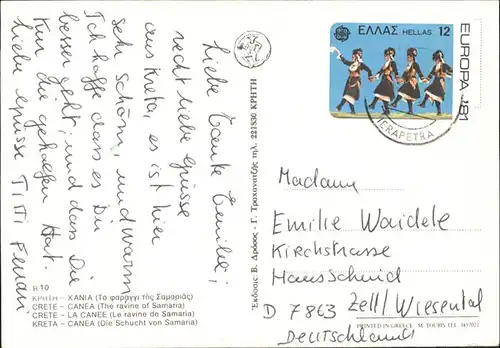 Liebe Tante Emilie;
recht liebe grüsse
aus Kreta, es ist hier
sehr schön, und warm
Ich hoffe dass es Dir
besser geht, und dass Die
Kur dir geholfen Hat.
Liebe grüsse Titi
R 10
ΚΡΗΤΗ - ΧΑΝΙΑ (Το φαράγγι τῆς Σαμαριᾶς)
CRETE - CANEA (The ravine of Samaria)
CRETE - LA CANEE (Le ravine de Samaria)
KRETA - CANEA (Die Schucht von Samaria)
Ἐκδοσις: Β. Δρόσος - Γ. Τραχανατζῆς τηλ. 221830 ΚΡΗΤΗ
ΕΛΛΑΣ HELLAS 12
EUROPA 1981
IERAPETRA
Madame
Emilie Waidele
Kirchstrasse
Hansschuid
D 7863 Zell/Wiesental
Deutschland
PRINTED IN GREECE M. TOUBIS TEL.